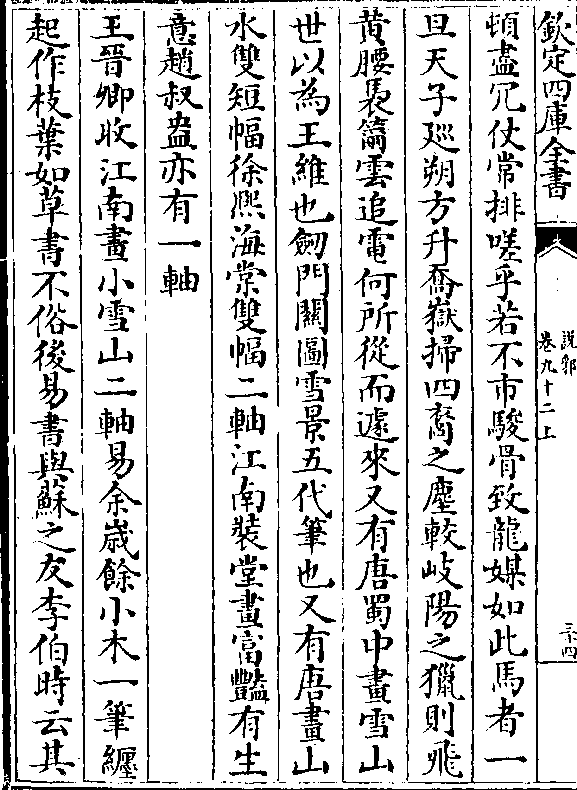 欽定四庫全書
說郛
卷九十二上
三十四
頓盡冗仗常排嗟乎若不市駿骨致龍媒如此馬者一
旦天子廵朔方升喬嶽掃四裔之塵較岐陽之獵則飛
黄腰褭籋雲追電何所從而遽來又有唐蜀中畫雪山
世以為王維也劒門關圖雪景五代筆也又有唐畫山
水雙短幅徐熙海棠雙幅二軸江南裝堂畫富豔有生
意趙叔盎亦有一軸
王晉卿收江南畫小雪山二軸易余嵗餘小木一筆纒
起作枝葉如草書不俗後易書與蘇之友李伯時云其